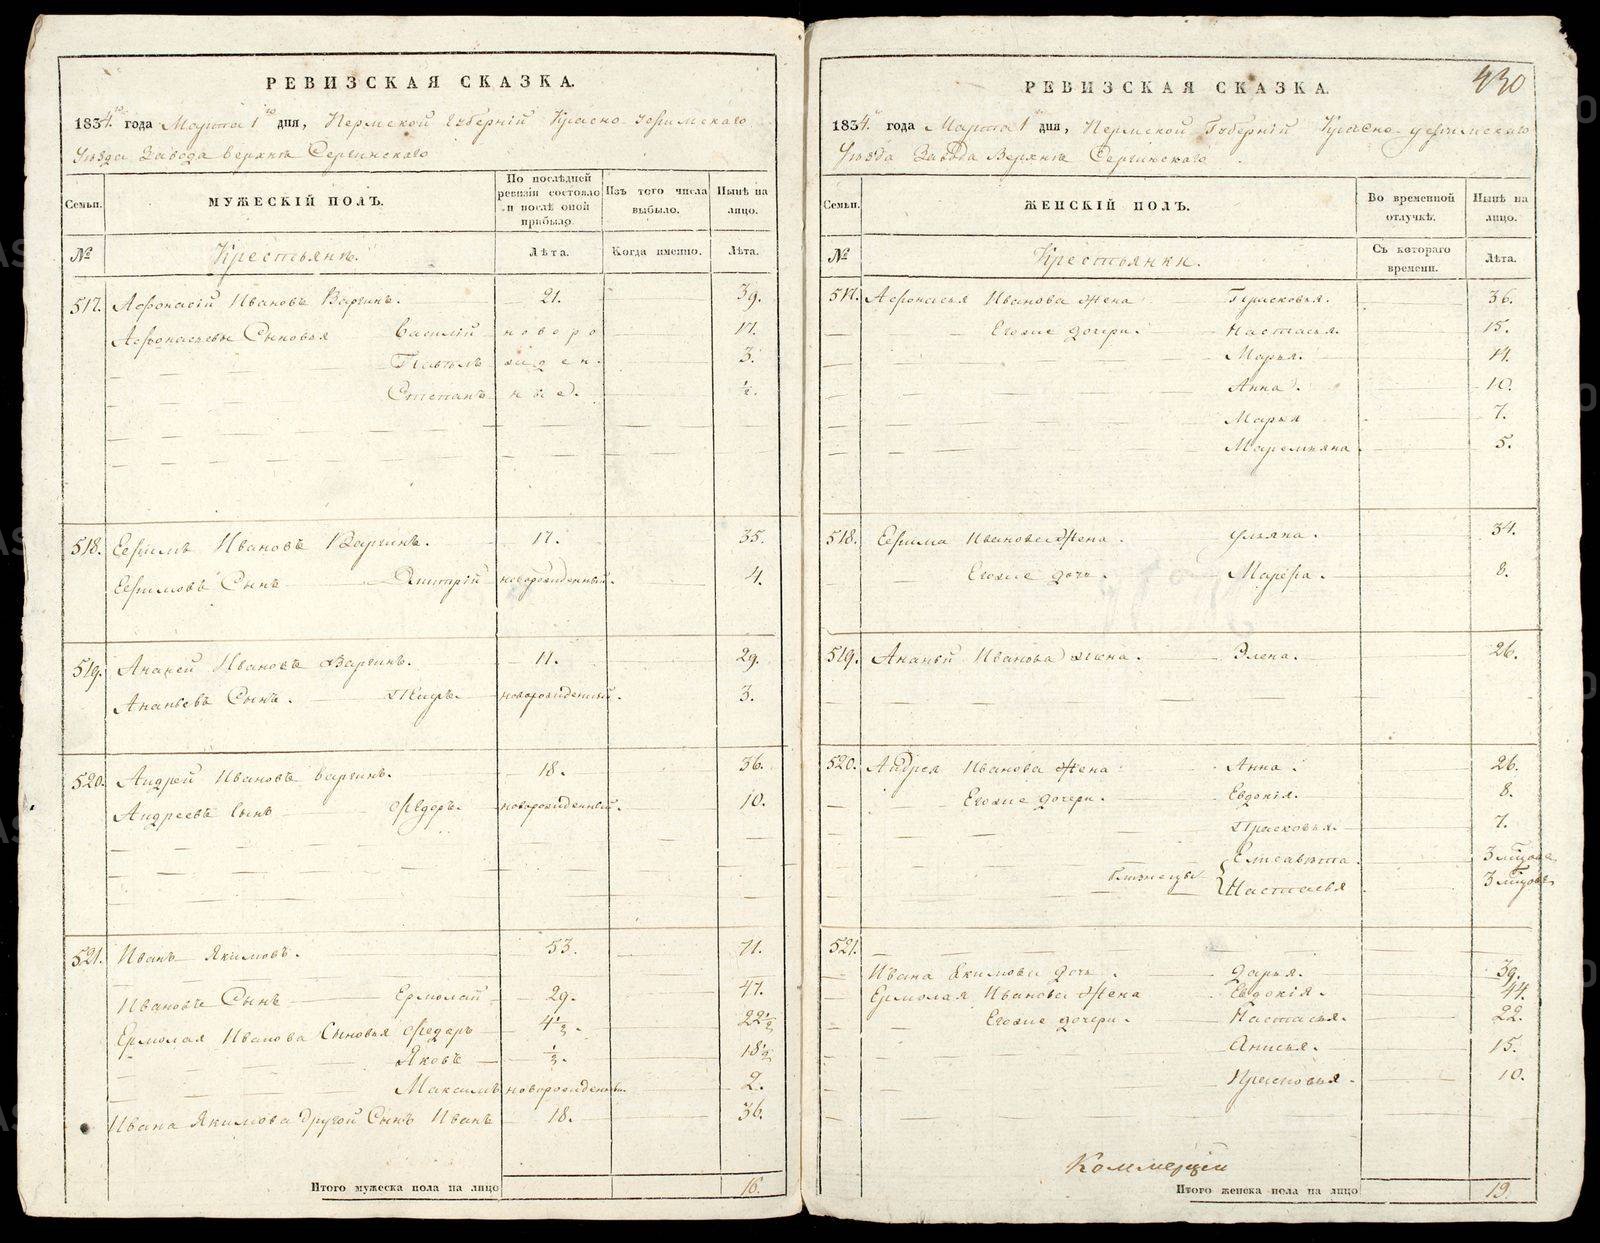 РЕВИЗСКАЯ СКАЗКА.
1834го года Марта 1го дня, Пермской Губерній Красно Уфимскаго
Уѣзда Завода Верхнѣ Сергинскаго
Семьи. МУЖЕСКІЙ ПОЛЪ. По послѣдней ревизіи состояло и послѣ оной прибыло. Изъ того числа выбыло. Нынѣ на лицо.
№ Крестьянѣ. Лѣта. Когда именно. Лѣта.
517. Афонасій Ивановъ Варгинъ. 21. 39.
Афонасьевы Сыновья Василій новоро 17.
Павелъ жден. 3.
Степанъ ные. ½.
518. Ефимъ Ивановъ Варгинъ. 17. 35.
Ефимовъ Сынъ Дмитрій новорожденный. 4.
519. Ананей Ивановъ Варгинъ. 11. 29.
Ананьевъ Сынъ. новорожденный. 3.
520. Андрей Ивановъ Варгинъ. 18. 36.
Андреевъ Сынъ Ѳедоръ. новорожденный. 10.
521. Иванъ Якимовъ. 53. 71.
Ивановъ Сынъ Ермолай 29. 47.
Ермолая Иванова Сыновья Ѳедоръ 4½. 22½
Яковъ ½. 18½
Максимъ новорожденный. 2.
Ивана Якимова другой Сынъ Иванъ 18. 36.
Итого мужеска пола на лицо 16.
430
РЕВИЗСКАЯ СКАЗКА.
1834го года Марта 1го дня, Пермской Губерній Красно-уфимскаго
Уѣзда Завода Верхнѣ Сергинскаго
Семьи. ЖЕНСКІЙ ПОЛЪ. Во временной отлучкѣ. Нынѣ на лицо.
№ Крестьянки. Съ котораго времени. Лѣта.
517. Афонасья Иванова Жена Прасковья. 36.
Егоже дочери. Настасья. 15.
Марья. 14.
Анна. 10.
Марья 7.
Маремьяна. 5.
518. Ефима Иванова Жена. Ульяна. 34.
Егоже дочь. Марфа. 8.
519. Ананьи Иванова жена. Элена. 26.
520. Андрея Иванова Жена Анна. 26.
Егоже дочери. Евдокія. 8.
Прасковья. 7.
Близнецы Елисавета. 3 мѣцовъ
Настасья 3 мѣцовъ
521.
Ивана Якимова дочь. Дарья. 39.
Ермолая Иванова Жена Евдокія. 44.
Егоже дочери. Настасья. 22.
Анисья. 15.
Прасковья. 10.
Итого женска пола на лицо 19.